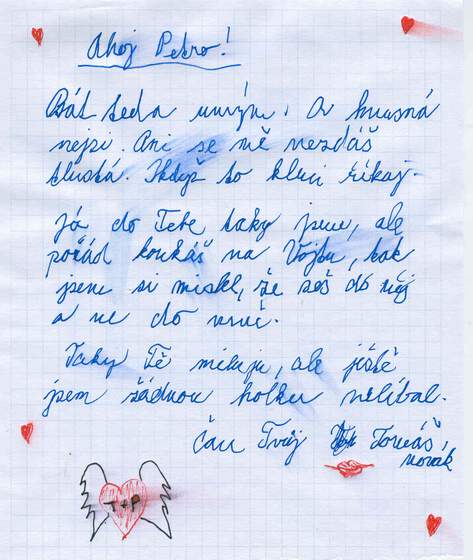 Ahoj Petro!
teda umím. A hnusná
nejsi. Ani se mě nezdáš
tlustá. Ikdyž to kluci říkaj.
já do Tebe taky jsem, ale
pořád koukáš na Vojtu, tak
jsem si mislel, že seš do něj
a ne do mně.
Taky Tě miluju, ale ještě
jsem žádnou holku nelíbal.
čau Tvůj Tomáš
Novák
T+P